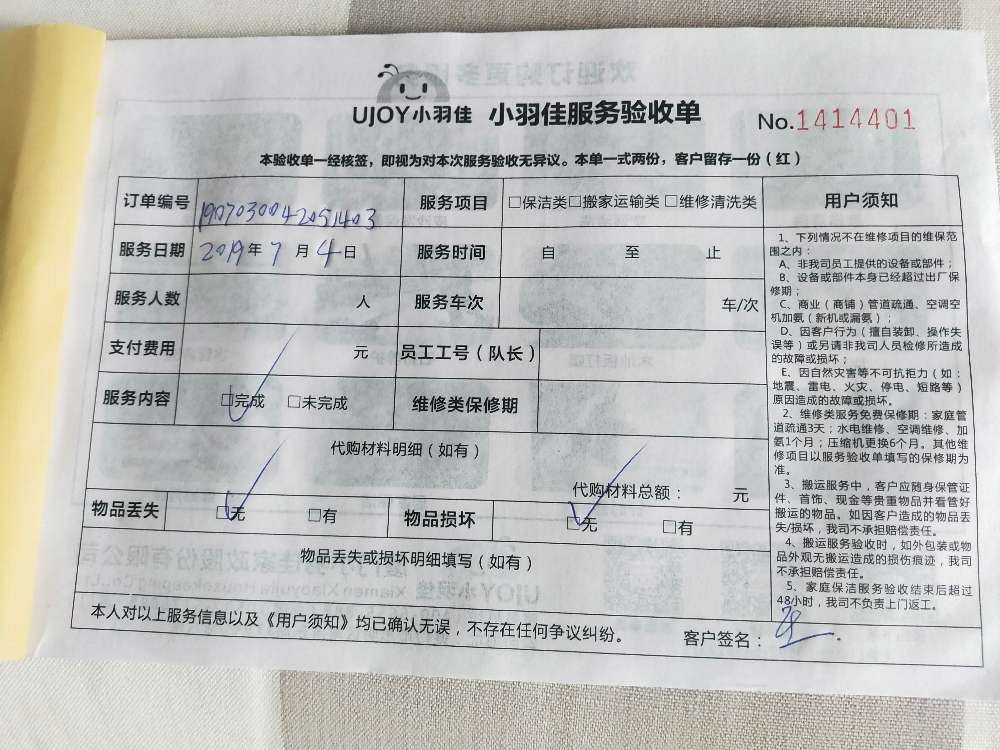 UJOY小羽佳 小羽佳服务验收单 No.1414401
本验收单一经核签，即视为对本次服务验收无异议。本单一式两份，客户留存一份（红）
订单编号 1907030042051403 服务项目 □保洁类□搬家运输类 □维修清洗类
服务日期 2019年 7 月 4 日 服务时间 自 至 止
服务人数 人 服务车次 车/次
支付费用 元 员工工号（队长）
服务内容 □完成 □未完成 维修类保修期
代购材料明细（如有）
代购材料总额： 元
物品丢失 □无 □有 物品损坏 □无 □有
物品丢失或损坏明细填写（如有）
本人对以上服务信息以及《用户须知》均已确认无误，不存在任何争议纠纷。 客户签名：
用户须知
1、下列情况不在维修项目的维保范
围之内：
A、非我司员工提供的设备或部件；
B、设备或部件本身已经超过出厂保
修期；
C、商业（商铺）管道疏通、空调空
机加氨（新机或漏氨）；
D、因客户行为（擅自装卸、操作失
误等）或另请非我司人员检修所造成
的故障或损坏；
E、因自然灾害等不可抗拒力（如：
地震、雷电、火灾、停电、短路等）
原因造成的故障或损坏。
2、维修类服务免费保修期：家庭管
道疏通3天；水电维修、空调维修、加
氨1个月；压缩机更换6个月。其他维
修项目以服务验收单填写的保修期为
准。
3、搬运服务中，客户应随身保管证
件、首饰、现金等贵重物品并看管好
搬运的物品。如因客户造成的物品丢
失/损坏，我司不承担赔偿责任。
4、搬运服务验收时，如外包装或物
品外观无搬运造成的损伤痕迹，我司
不承担赔偿责任。
5、家庭保洁服务验收结束后超过
48小时，我司不负责上门返工。